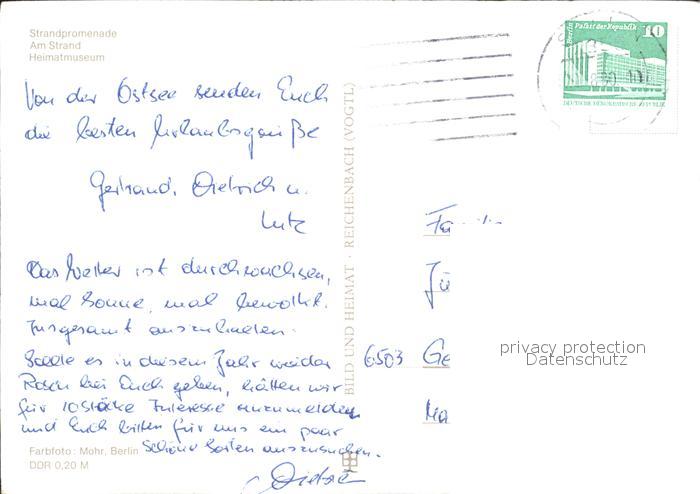 Strandpromenade
Am Strand
Heimatmuseum
Von der Ostsee senden Euch
die besten Urlaubsgrüße
Gertraud, Dietrich u.
Lutz
Das Wetter ist durchwachsen,
mal Sonne, mal bewölkt.
Insgesamt auszuhalten.
Sollte es in diesem Jahr wieder
Rosen bei Euch geben, hätten wir
für 10 Stöcke Interesse anzumelden
und Euch bitten für uns ein paar
schöne Sorten auszusuchen.
Dietrich
Farbfoto: Mohr, Berlin
DDR 0,20 M
BILD UND HEIMAT · REICHENBACH (VOGTL)
Berlin Palast der Republik
10
DEUTSCHE DEMOKRATISCHE REPUBLIK
Fa
Jü
6503 Ge
Ma
privacy protection
Datenschutz